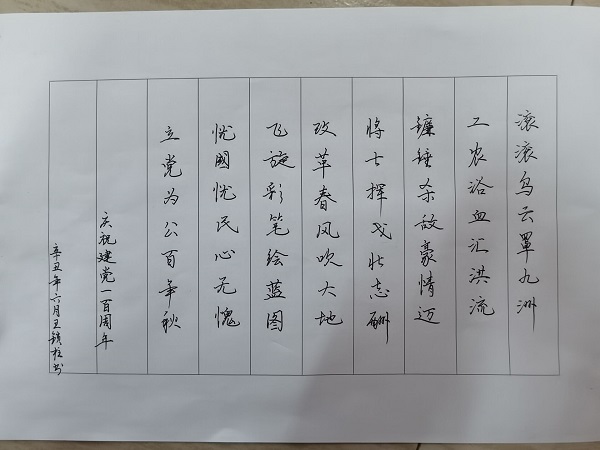 滚滚乌云罩九洲
工农浴血汇洪流
镰锤杀敌豪情迈
将士挥戈壮志酬
改革春风吹大地
飞旋彩笔绘蓝图
忧國忧民心无愧
立党为公百年秋
庆祝建党一百周年
辛丑年六月王镇柱书